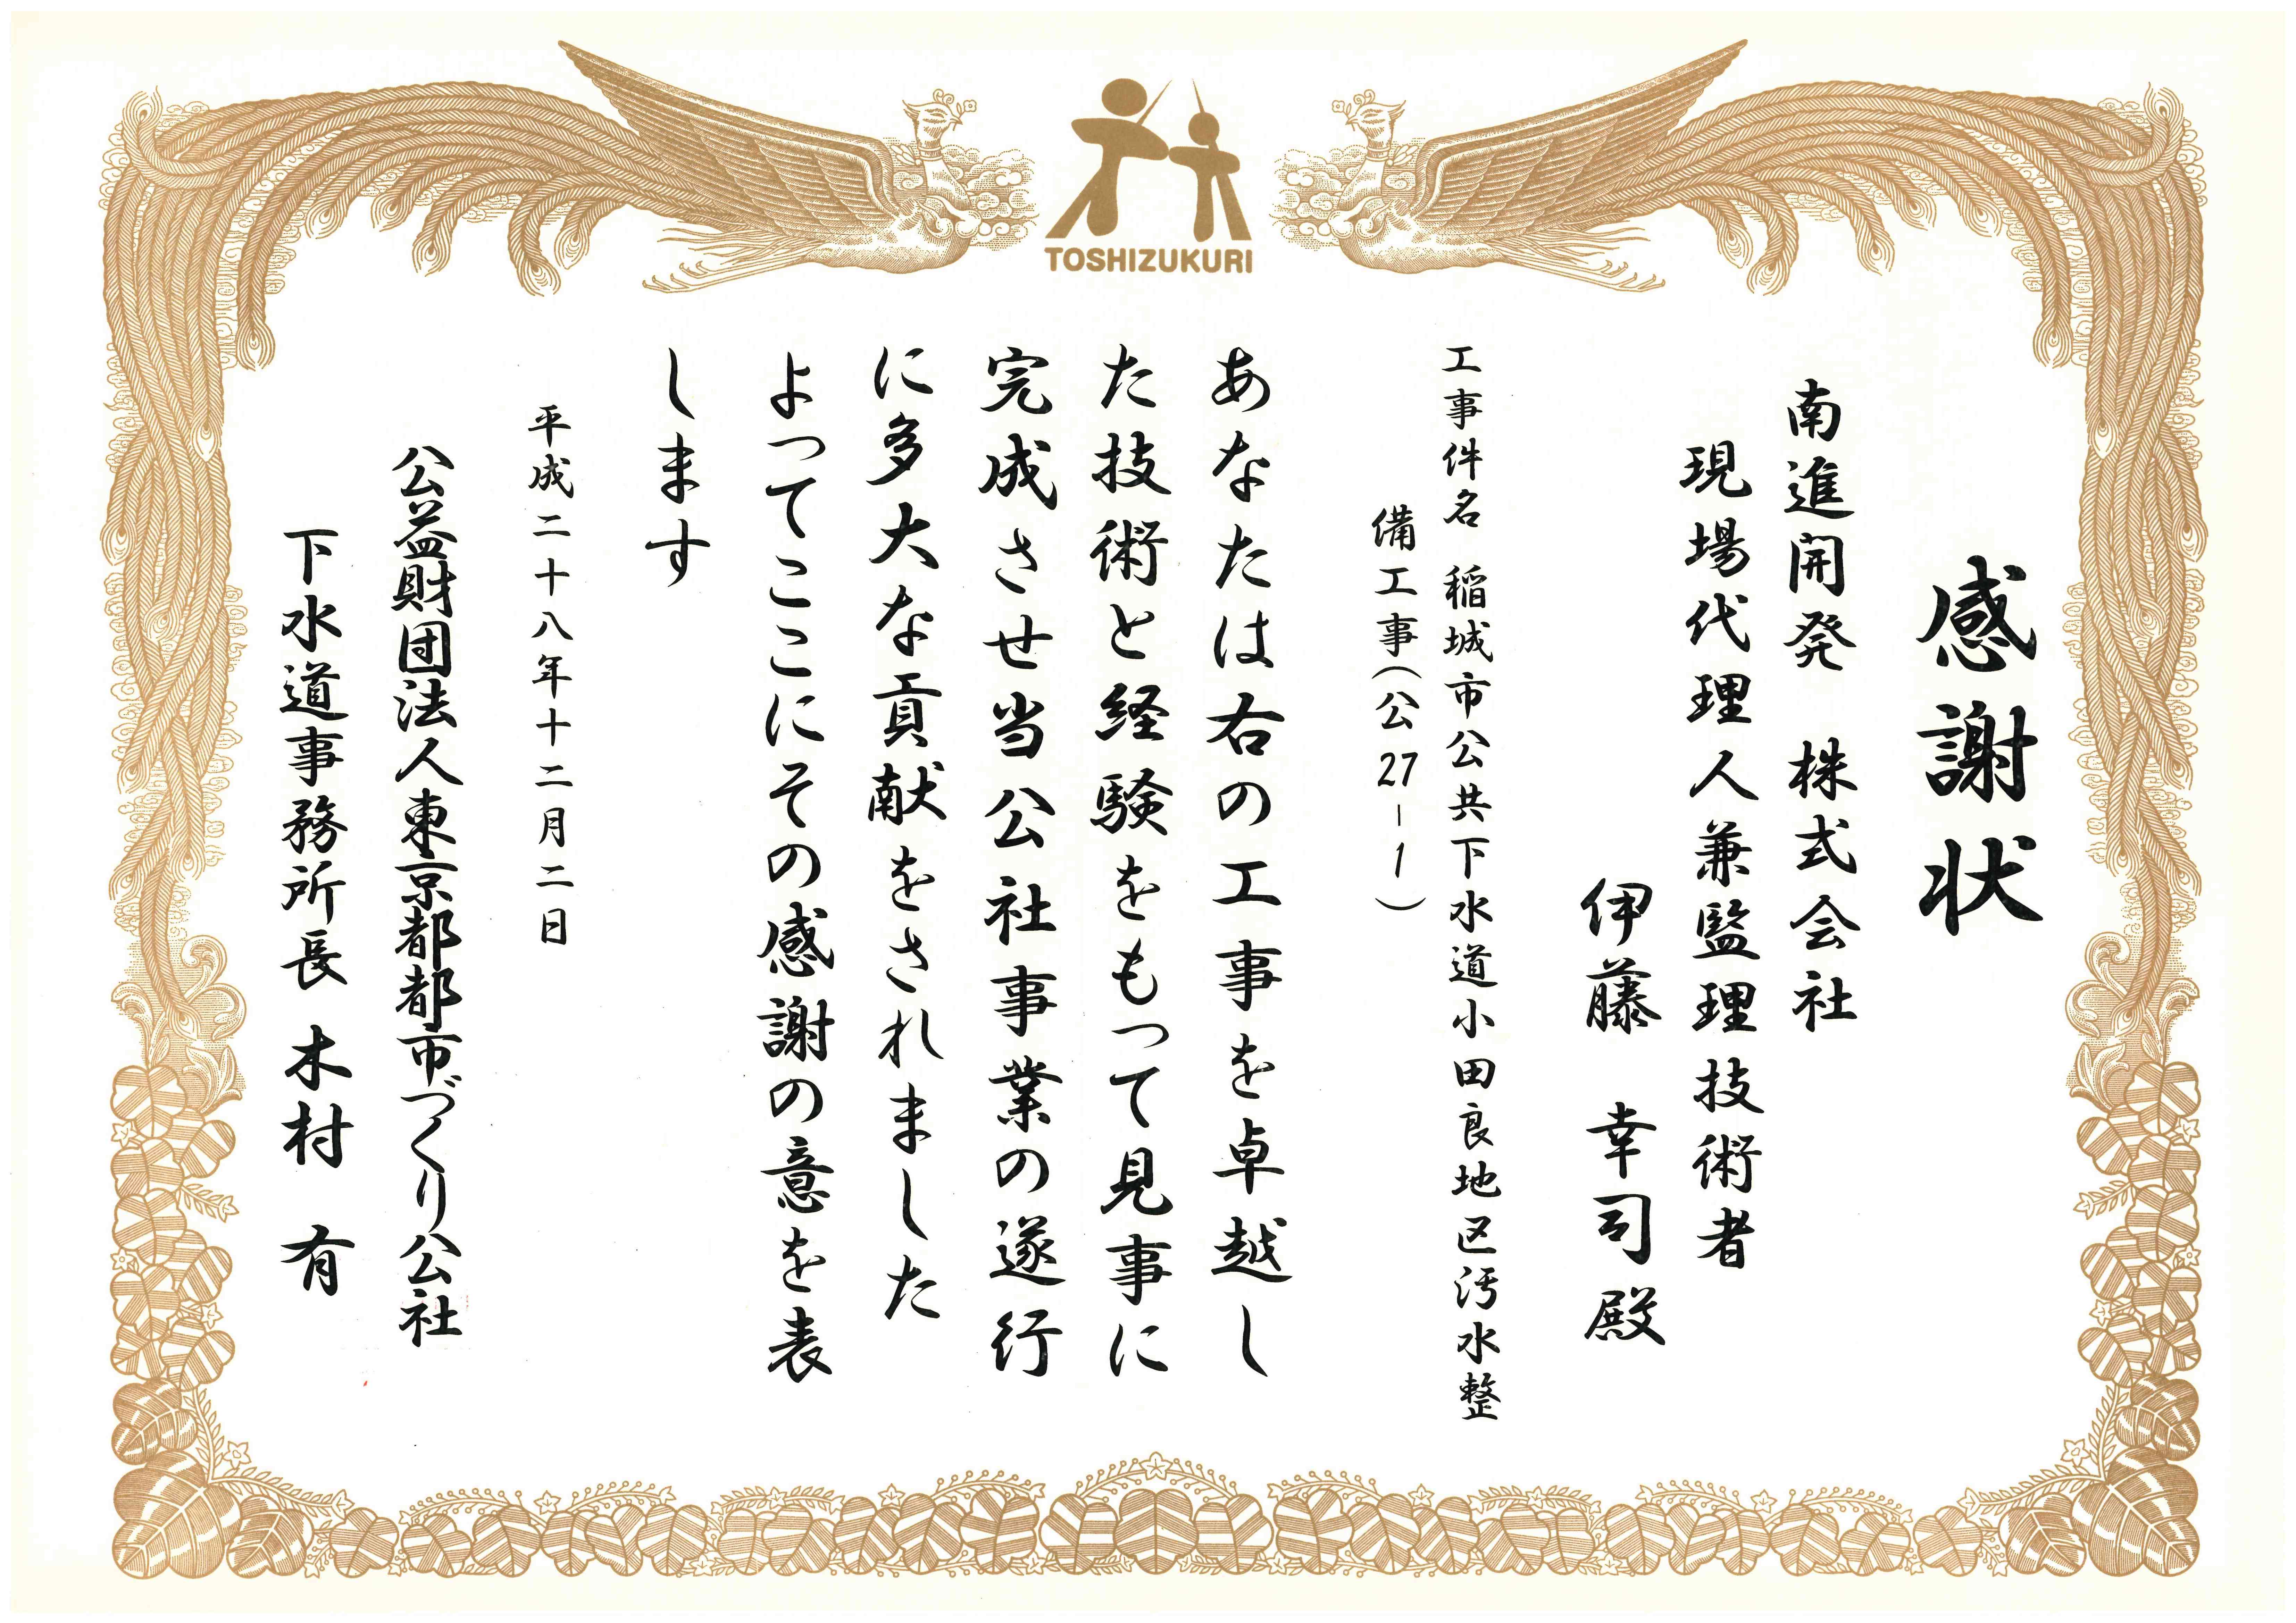 TOSHIZUKURI
感謝状
南進開発 株式会社
現場代理人兼監理技術者
伊藤 幸司殿
工事件名 稲城市公共下水道小田良地区汚水整
備工事(公27-1)
あなたは右の工事を卓越し
た技術と経験をもって見事に
完成させ当公社事業の遂行
に多大な貢献をされました
よってここにその感謝の意を表
します
平成二十八年十二月二日
公益財団法人東京都都市づくり公社
下水道事務所長 木村 有